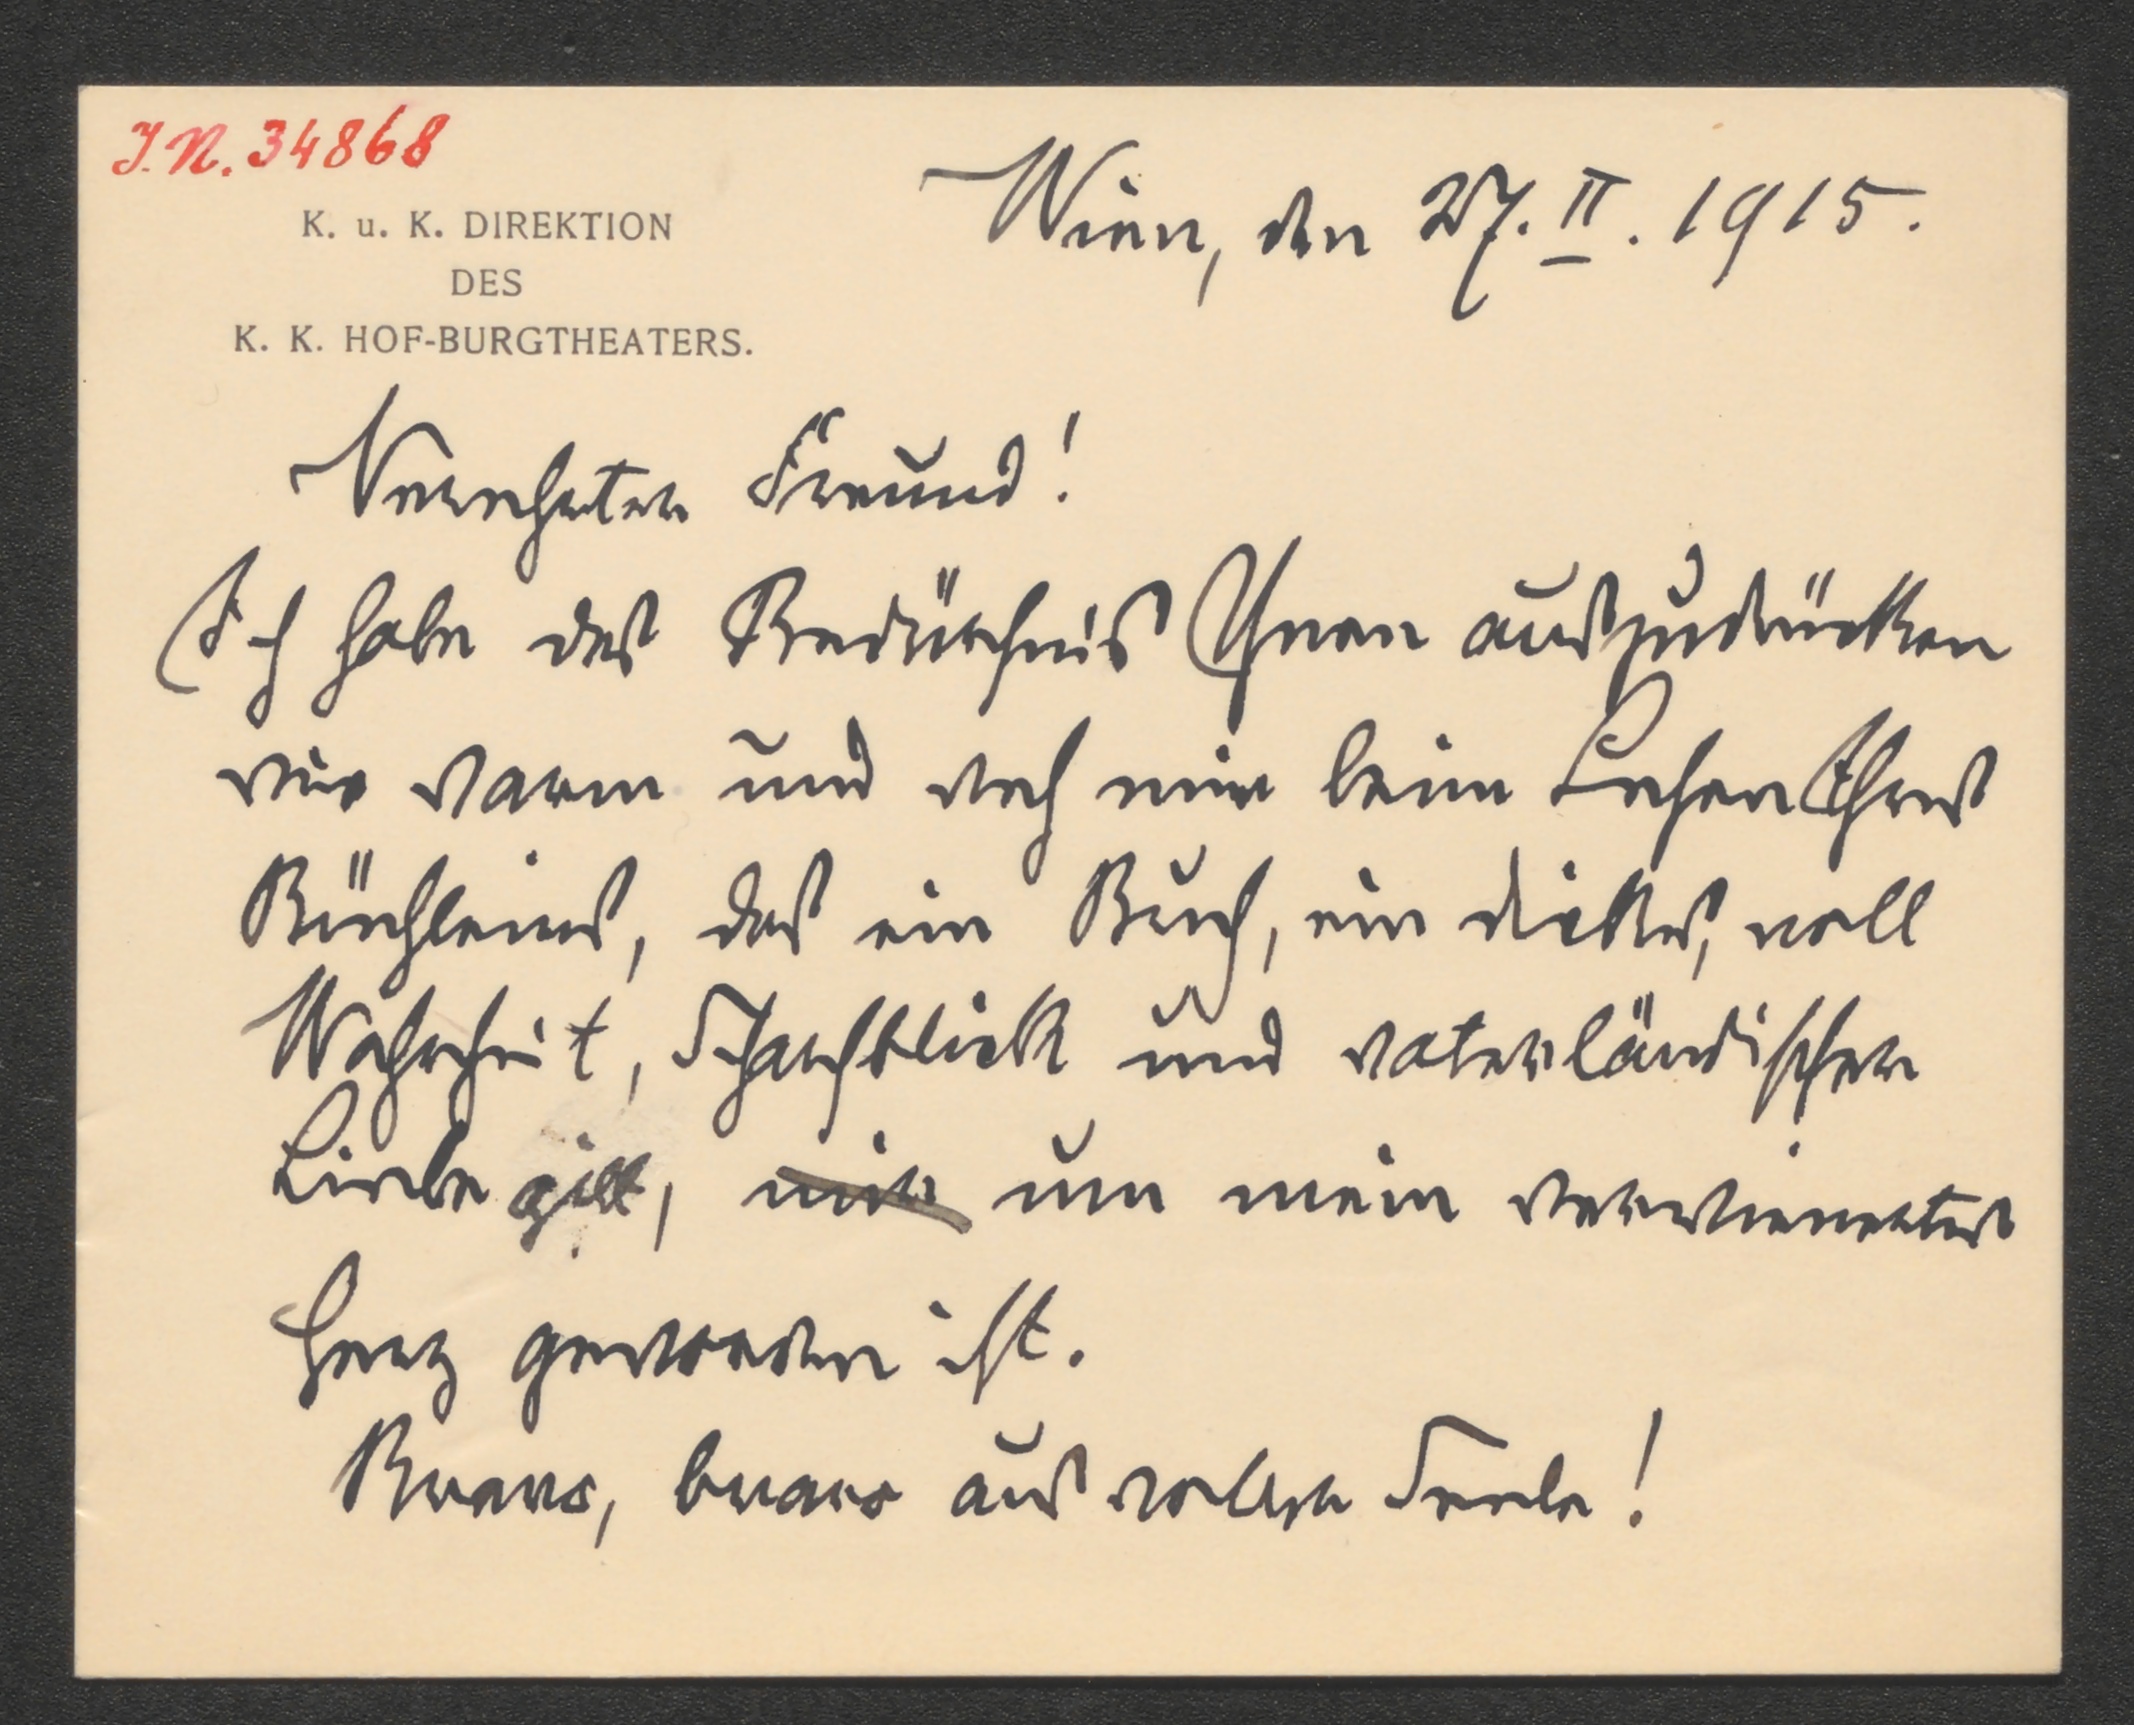 J.N. 34868
K. u. K. DIREKTION
DES
K. K. HOF-BURGTHEATERS.
Wien, den 27. II. 1915.
Verehrter Freund!
Ich habe das Bedürfnis Ihnen auszudrücken
wie warm und weh mir beim Lesen Ihres
Büchleins, das ein Buch, ein dickes, voll
Wahrheit, Scharfblick und vaterländischer
Liebe gilt, mir um mein verwienertes
Herz geworden ist.
Bravo, bravo aus voller Seele!